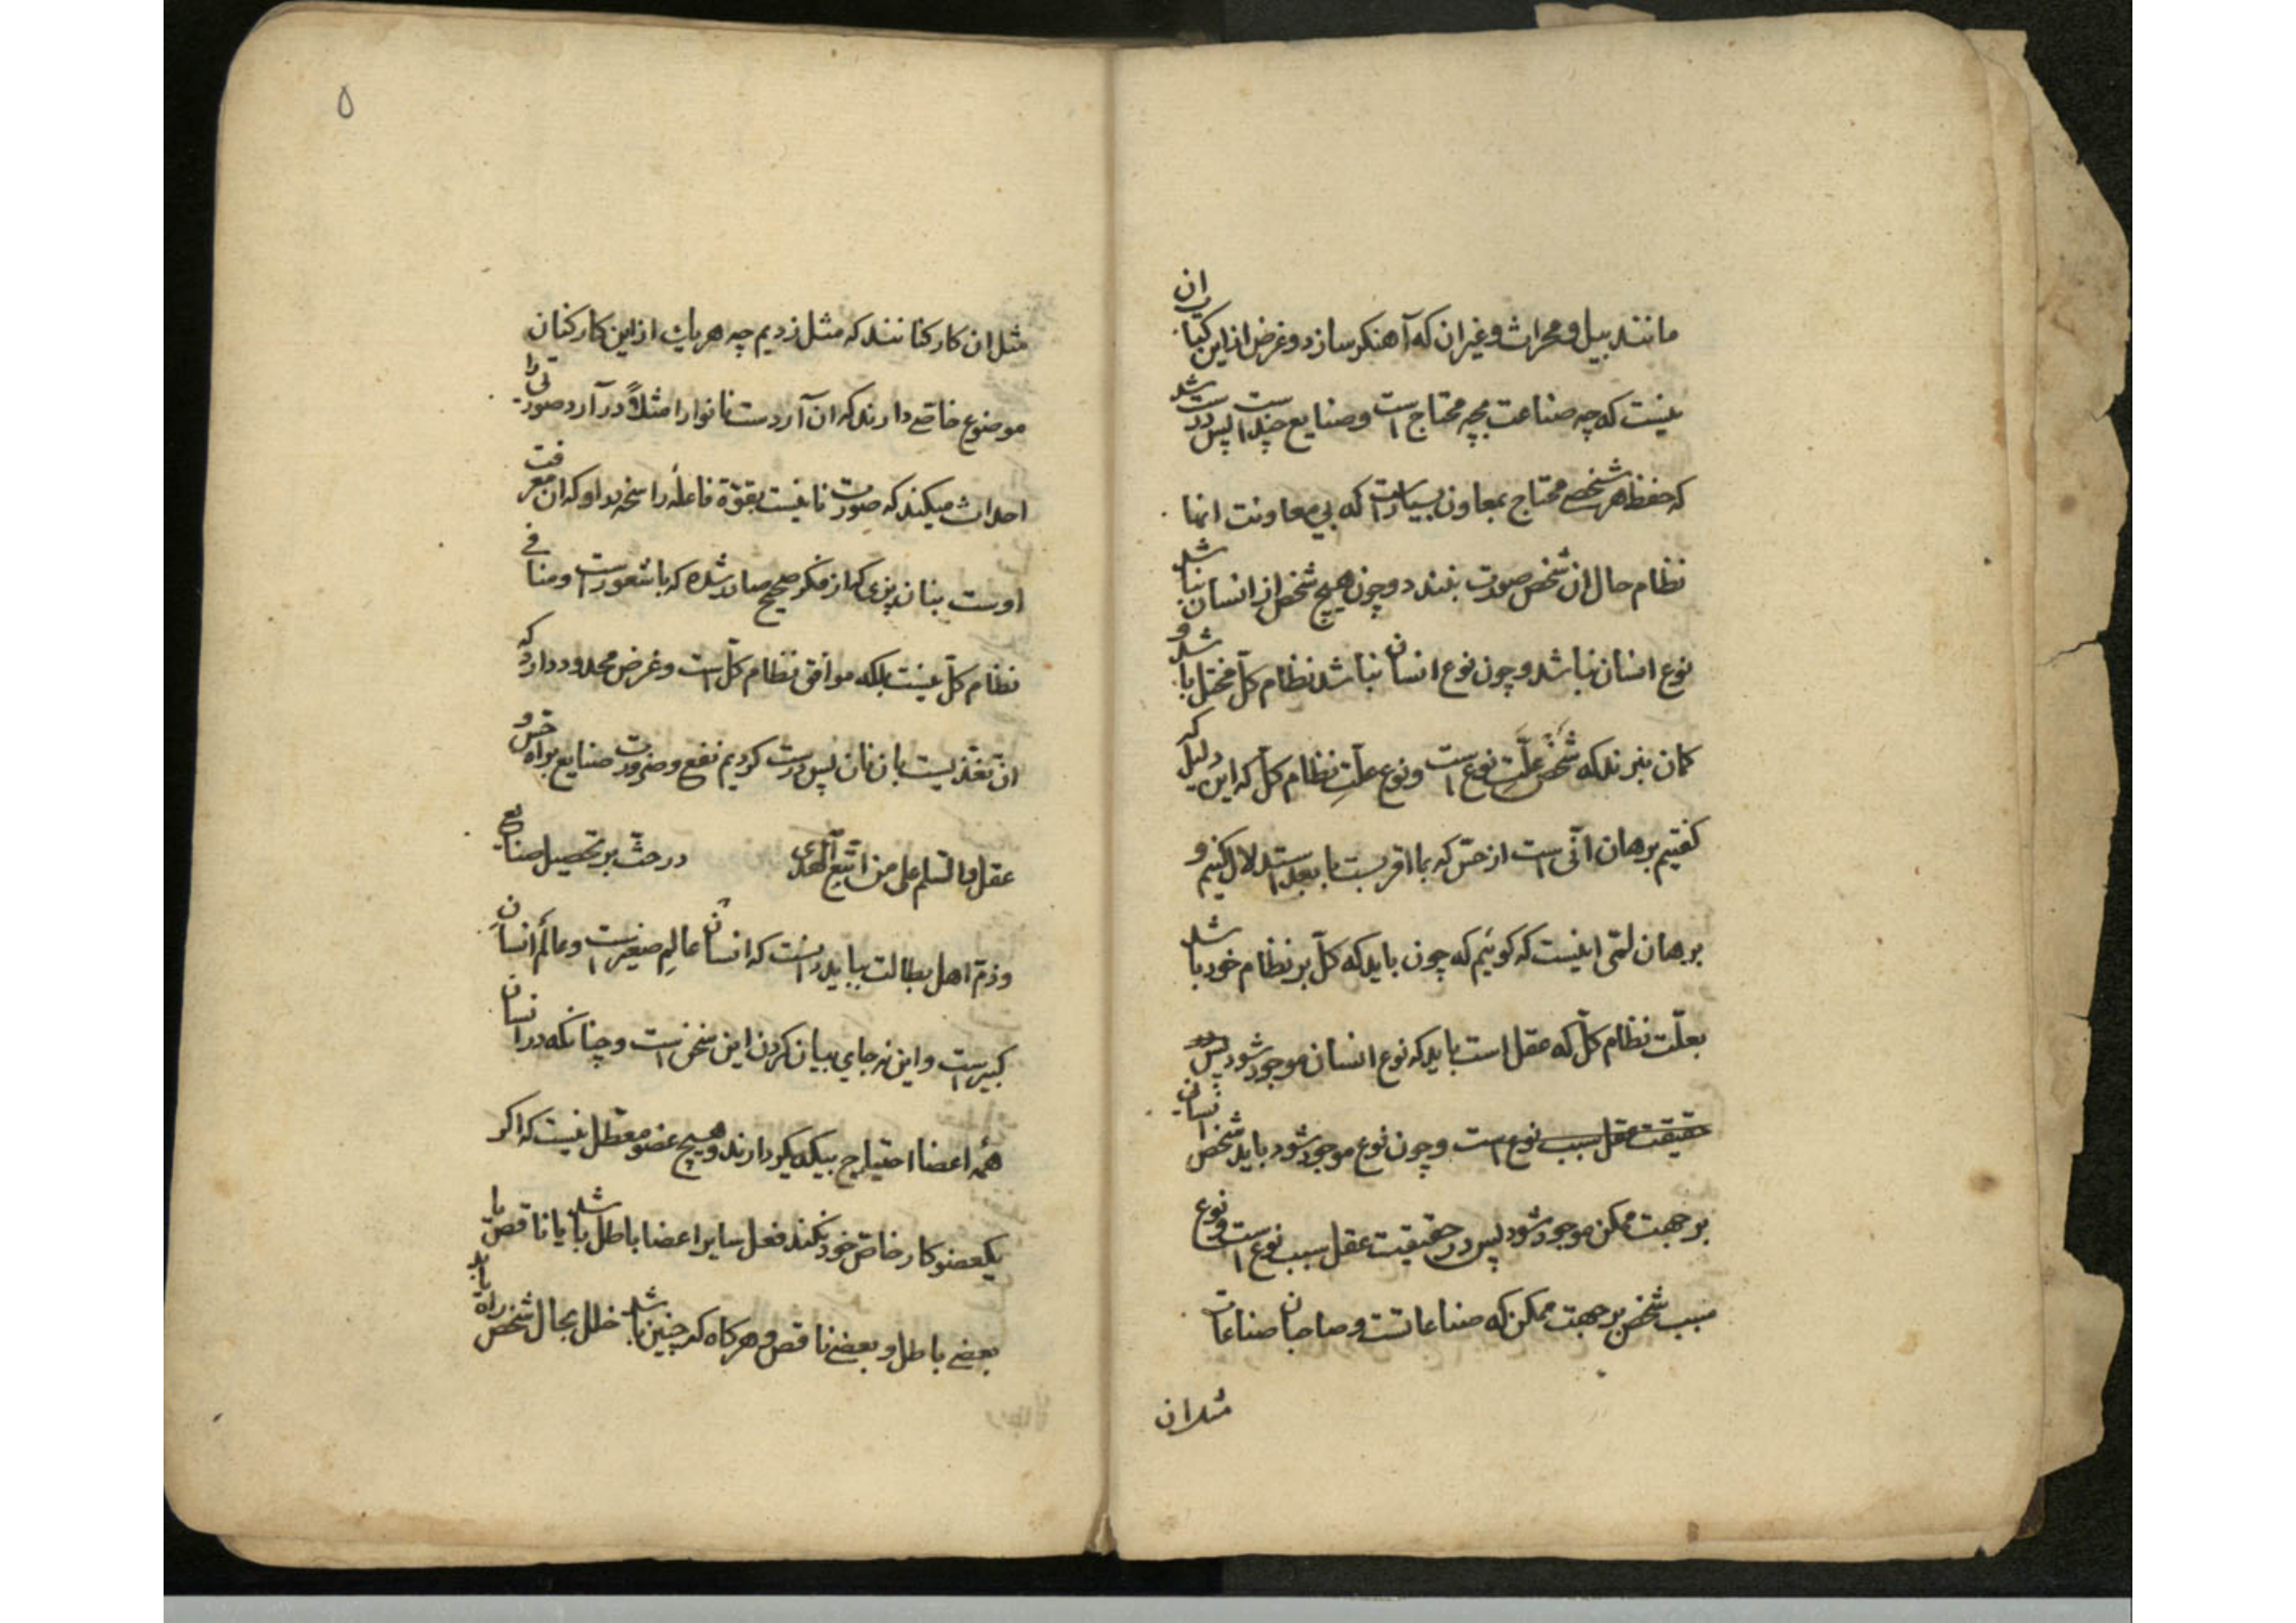 مانند بیل و محراث و غیر ان که آهنکر سازد و غرض از این کیان
نیست که چه صناعت بچه محتاج است و صنایع چند است پس درست شد
که حفظ هر شخصی محتاج بمعاون بسیارست که بی معاونت انها
نظام حال ان شخص صورت نبندد و چون هیچ شخص از انسان نباشد
نوع انسان نباشد و چون نوع انسان نباشد نظام کلّ مختل باشد و
کمان نبرند که شخص علّتِ نوع است و نوع علّتِ نظام کلّ که این دلیل که
کفتیم برهان انّی است از حسّ که بما اقربست با بعد استدلال کنیم و
برهان لمّی اینست که کوئیم که چون باید که کلّ بر نظام خود باشد
بعلّت نظام کلّ که عقل است باید که نوع انسان موجود شود پس در
حقیقت عقل سبب نوع است و چون نوع موجود شود باید شخص انسان
بر جهت ممکن موجود شود پس در حقیقت عقل سبب نوع است و نوع
سبب شخص بر جهت ممکن که صناعاتست و صاحبان صناعات
مثل ان
۵
مثل ان کارکنانند که مثل زدیم چه هر یک از این کارکنان
موضوع خاصّی دارند که ان آردست نانوا را مثلاً و در آرد صورتی را
احداث میکند که صورت نانیست بقوّة فاعله راسخه در او که ان معرفت
اوست بنان پزی که از فکر صحیح صادر شده که با شعور است و منافی
نظام کلّ نیست بلکه موافق نظام کلّ است و غرض محدود دارد که
ان تغذیست بان نان پس درست کردیم نفع و ضرورت صنایع براه حسّ و
عقل و السّلم علی من اتّبع الهدی در حثّ بر تحصیل صنایع
و ذمّ اهل بطالت بباید دانست که انسان عالمِ صغیر است و عالَم انسان
کبیر است و این نه جای بیان کردن این سخن است و چنانکه در انسان
همهٔ اعضا احتیاج بیکدیکر دارند و هیچ عضو معطل نیست که اکر
یکعضو کار خاصّ خود نکند فعل سایر اعضا باطل باشد یا ناقص یا
بعضی باطل و بعضی ناقص و هرکاه که چنین باشد خلل بحال شخص راه یابد